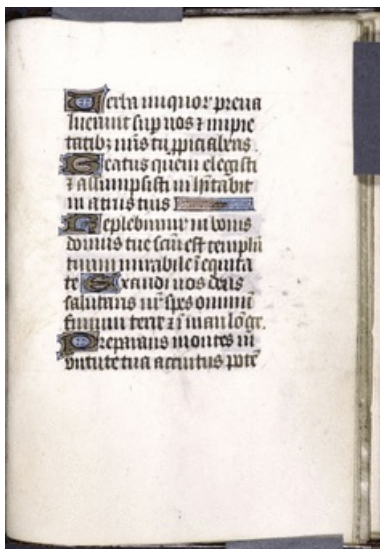 Verba iniquor preua
luerunt sup nos ⁊ impie
tatibꝫ nr̃is tu ppiciaberis.
Beatus quem elegisti
⁊ assumpsisti inhitabit
in atriis tuis
Replebimur in bonis
domus tue scm̄ est templū
tuum mirabile ī equita
te Exaudi nos deus
salutaris nr̄ spes omnium
finium terre ⁊ ī mari lōge.
Preparans montes in
virtute tua accintus potē